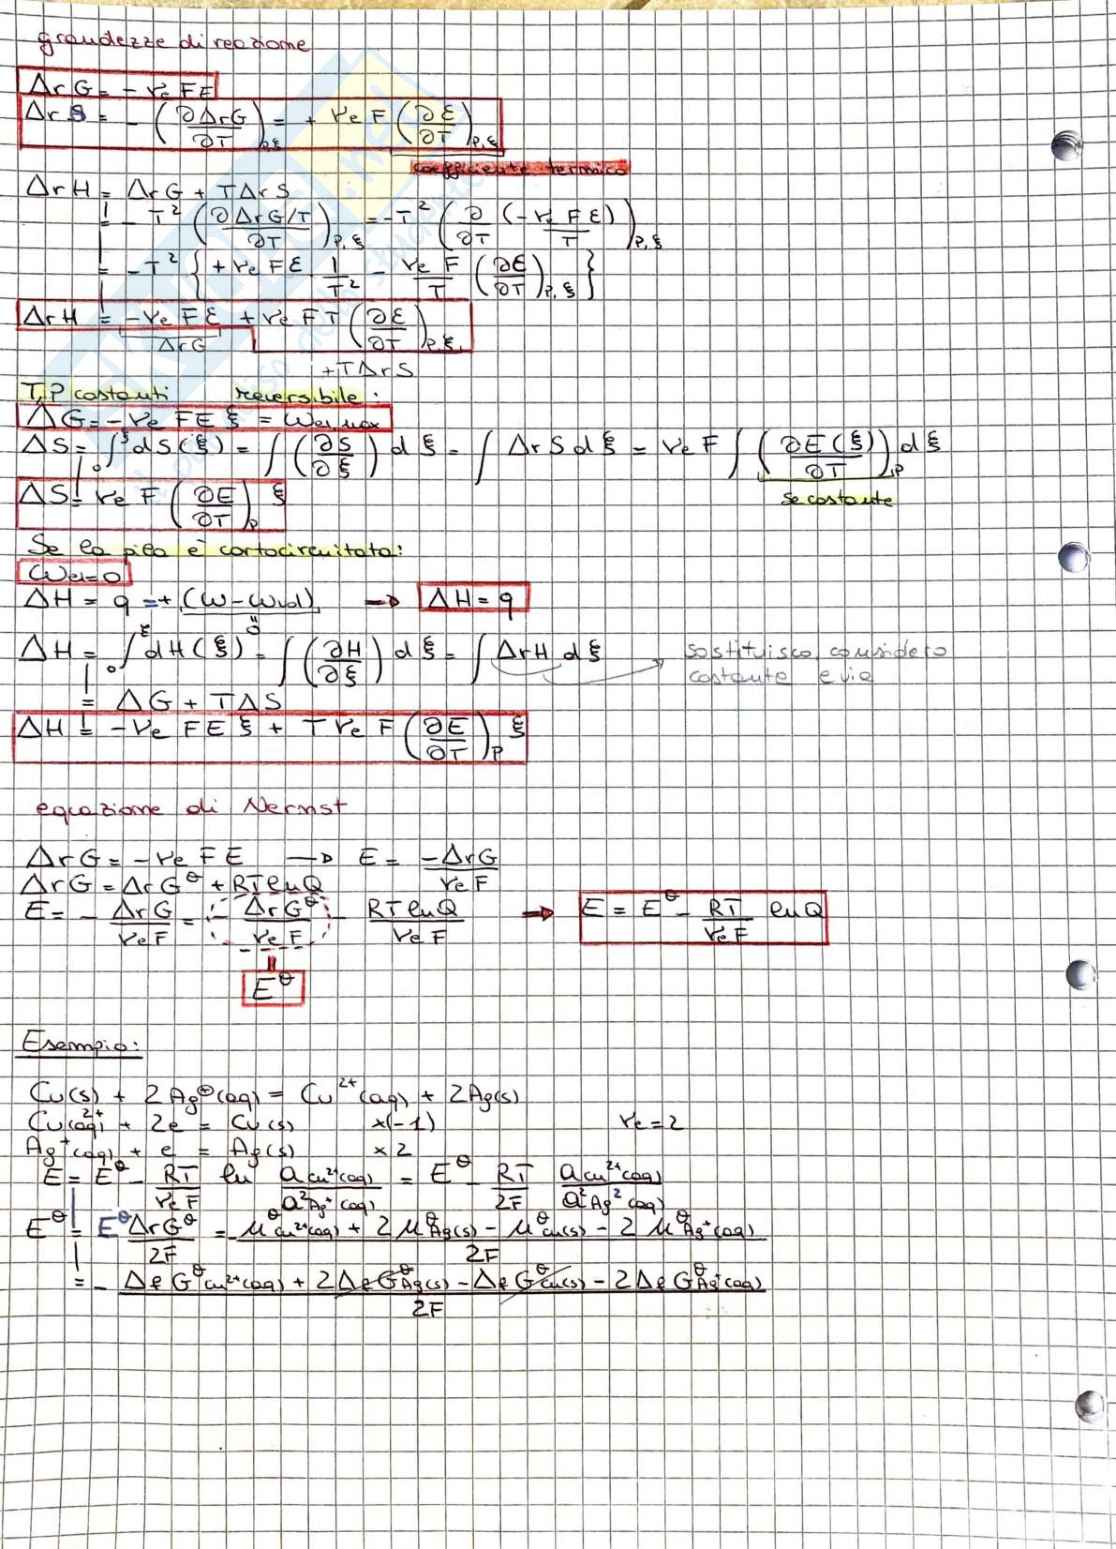 grandezze di reazione
ΔrG = - νe FE
ΔrS = - (∂ΔrG/∂T)p,ξ = + νe F (∂E/∂T)p,ξ
coefficiente termico
ΔrH = ΔrG + TΔrS
= - T² (∂ΔrG/T / ∂T)p,ξ = -T² (∂/∂T (-νe FE)/T)p,ξ
= -T² { + νe FE 1/T² - νe F/T (∂E/∂T)p,ξ }
ΔrH = -νe FE + νe FT (∂E/∂T)p,ξ
ΔrG
+TΔrS
T,P costanti reversibile:
ΔG = -νe FE ξ = Wel,max
ΔS = ∫₀^ξ dS(ξ) = ∫ (∂S/∂ξ) dξ = ∫ ΔrS dξ = νe F ∫ (∂E(ξ)/∂T)p dξ
se costante
ΔS = νe F (∂E/∂T)p ξ
Se la pila è cortocircuitata:
Wel=0
ΔH = q =+ (W-Wvol) → ΔH = q
0
ΔH = ∫₀^ξ dH(ξ) = ∫ (∂H/∂ξ) dξ = ∫ ΔrH dξ → sostituisco, considero
costante e via
= ΔG + TΔS
ΔH = -νe FE ξ + T νe F (∂E/∂T)p ξ
equazione di Nernst
ΔrG = -νe FE → E = -ΔrG/νe F
ΔrG = ΔrG^θ + RT ln Q
E = - ΔrG/νe F = - ΔrG^θ/νe F - RT ln Q/νe F → E = E^θ - RT/νe F ln Q
E^θ
Esempio:
Cu(s) + 2Ag⊕(aq) = Cu²⁺(aq) + 2Ag(s)
Cu²⁺(aq) + 2e = Cu(s) ×(-1) νe = 2
Ag⁺(aq) + e = Ag(s) ×2
E = E^θ - RT/νe F ln aCu²⁺(aq)/a²Ag⁺(aq) = E^θ - RT/2F aCu²⁺(aq)/a²Ag²(aq)
E^θ = E^θ ΔrG^θ/2F = - μ^θCu²⁺(aq) + 2μ^θAg(s) - μ^θCu(s) - 2μ^θAg⁺(aq) / 2F
= - ΔfG^θCu²⁺(aq) + 2ΔfG^θAg(s) - ΔfG^θCu(s) - 2ΔfG^θAg⁺(aq) / 2F